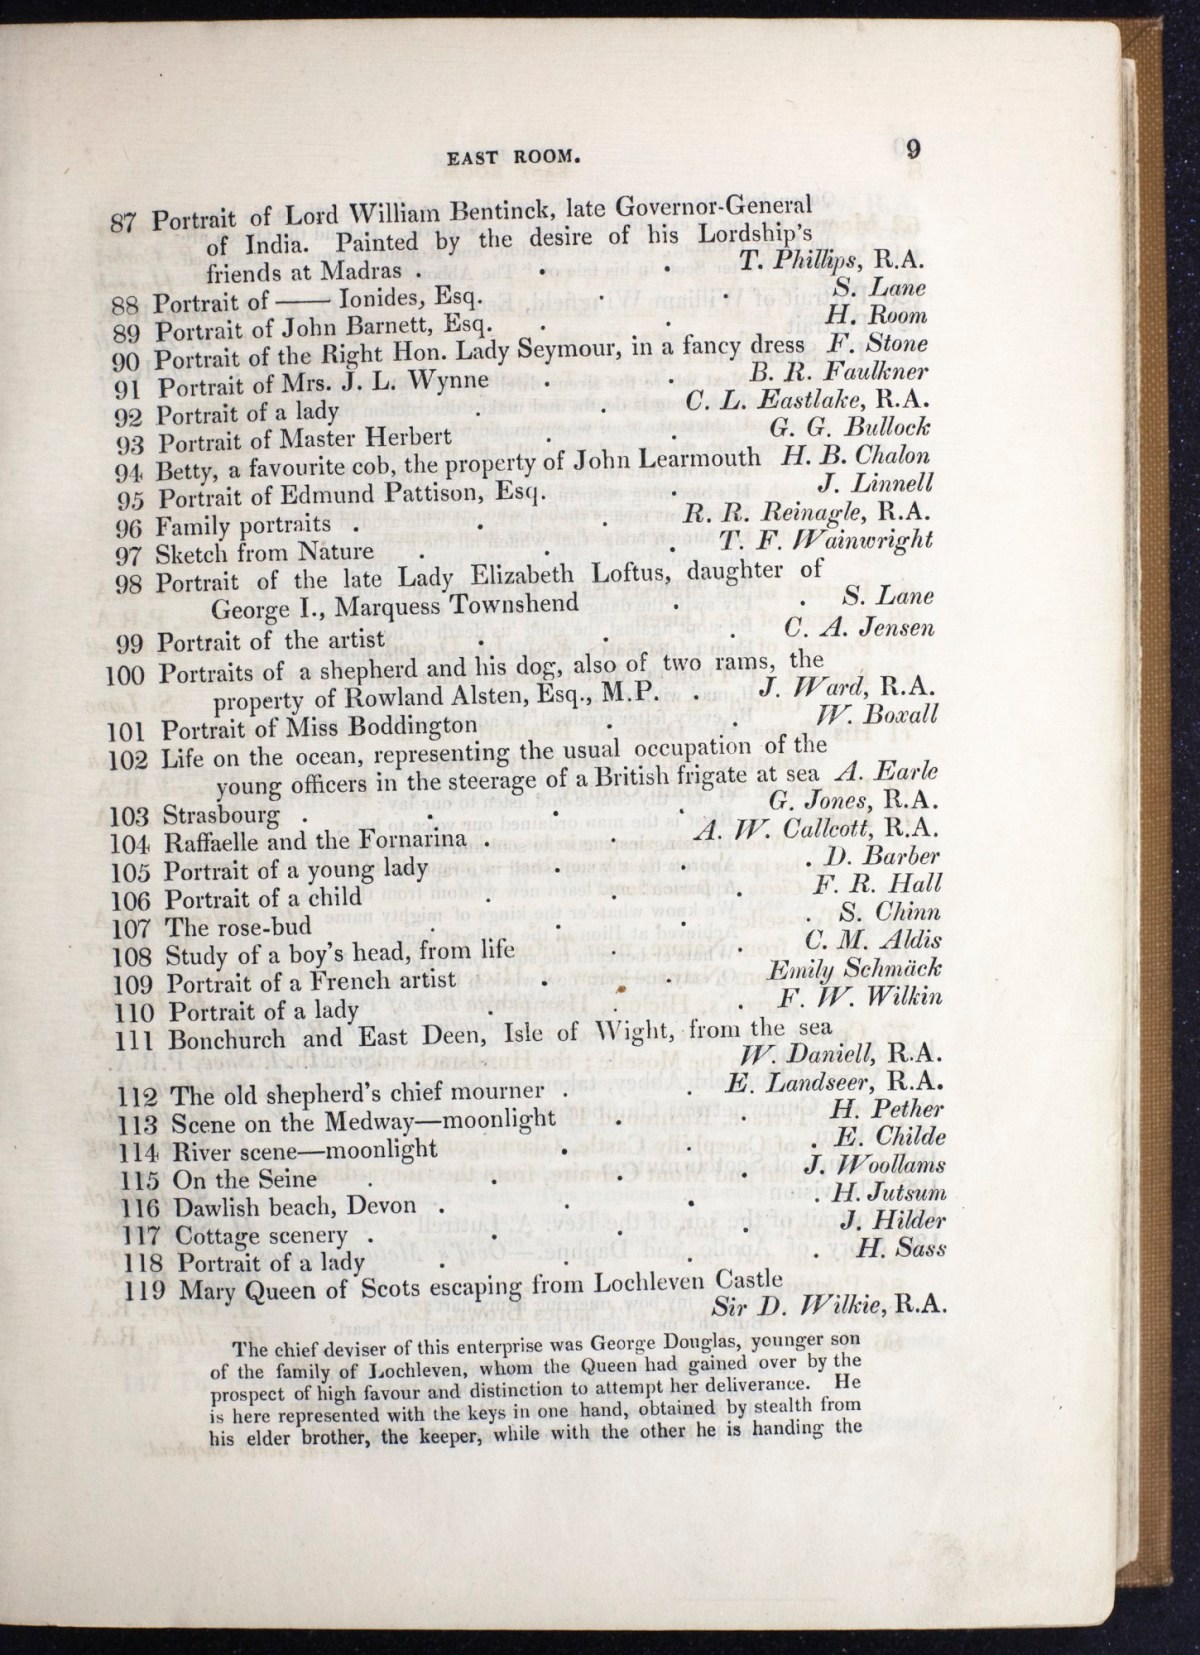 EAST ROOM. 9
87 Portrait of Lord William Bentinck, late Governor-General
of India. Painted by the desire of his Lordship's
friends at Madras . . . T. Phillips, R.A.
88 Portrait of —— Ionides, Esq. . . S. Lane
89 Portrait of John Barnett, Esq. . . H. Room
90 Portrait of the Right Hon. Lady Seymour, in a fancy dress F. Stone
91 Portrait of Mrs. J. L. Wynne . . B. R. Faulkner
92 Portrait of a lady . . C. L. Eastlake, R.A.
93 Portrait of Master Herbert . . G. G. Bullock
94 Betty, a favourite cob, the property of John Learmouth H. B. Chalon
95 Portrait of Edmund Pattison, Esq. . J. Linnell
96 Family portraits . . . R. R. Reinagle, R.A.
97 Sketch from Nature . . . T. F. Wainwright
98 Portrait of the late Lady Elizabeth Loftus, daughter of
George I., Marquess Townshend . . S. Lane
99 Portrait of the artist . . . C. A. Jensen
100 Portraits of a shepherd and his dog, also of two rams, the
property of Rowland Alsten, Esq., M.P. . J. Ward, R.A.
101 Portrait of Miss Boddington . . W. Boxall
102 Life on the ocean, representing the usual occupation of the
young officers in the steerage of a British frigate at sea A. Earle
103 Strasbourg . . . . G. Jones, R.A.
104 Raffaelle and the Fornarina . . A. W. Callcott, R.A.
105 Portrait of a young lady . . . D. Barber
106 Portrait of a child . . . F. R. Hall
107 The rose-bud . . . . S. Chinn
108 Study of a boy's head, from life . . C. M. Aldis
109 Portrait of a French artist . . Emily Schmäck
110 Portrait of a lady . . . F. W. Wilkin
111 Bonchurch and East Deen, Isle of Wight, from the sea
W. Daniell, R.A.
112 The old shepherd's chief mourner . . E. Landseer, R.A.
113 Scene on the Medway—moonlight . . H. Pether
114 River scene—moonlight . . . E. Childe
115 On the Seine . . . . J. Woollams
116 Dawlish beach, Devon . . . . H. Jutsum
117 Cottage scenery . . . . J. Hilder
118 Portrait of a lady . . . . H. Sass
119 Mary Queen of Scots escaping from Lochleven Castle
Sir D. Wilkie, R.A.
The chief deviser of this enterprise was George Douglas, younger son
of the family of Lochleven, whom the Queen had gained over by the
prospect of high favour and distinction to attempt her deliverance. He
is here represented with the keys in one hand, obtained by stealth from
his elder brother, the keeper, while with the other he is handing the